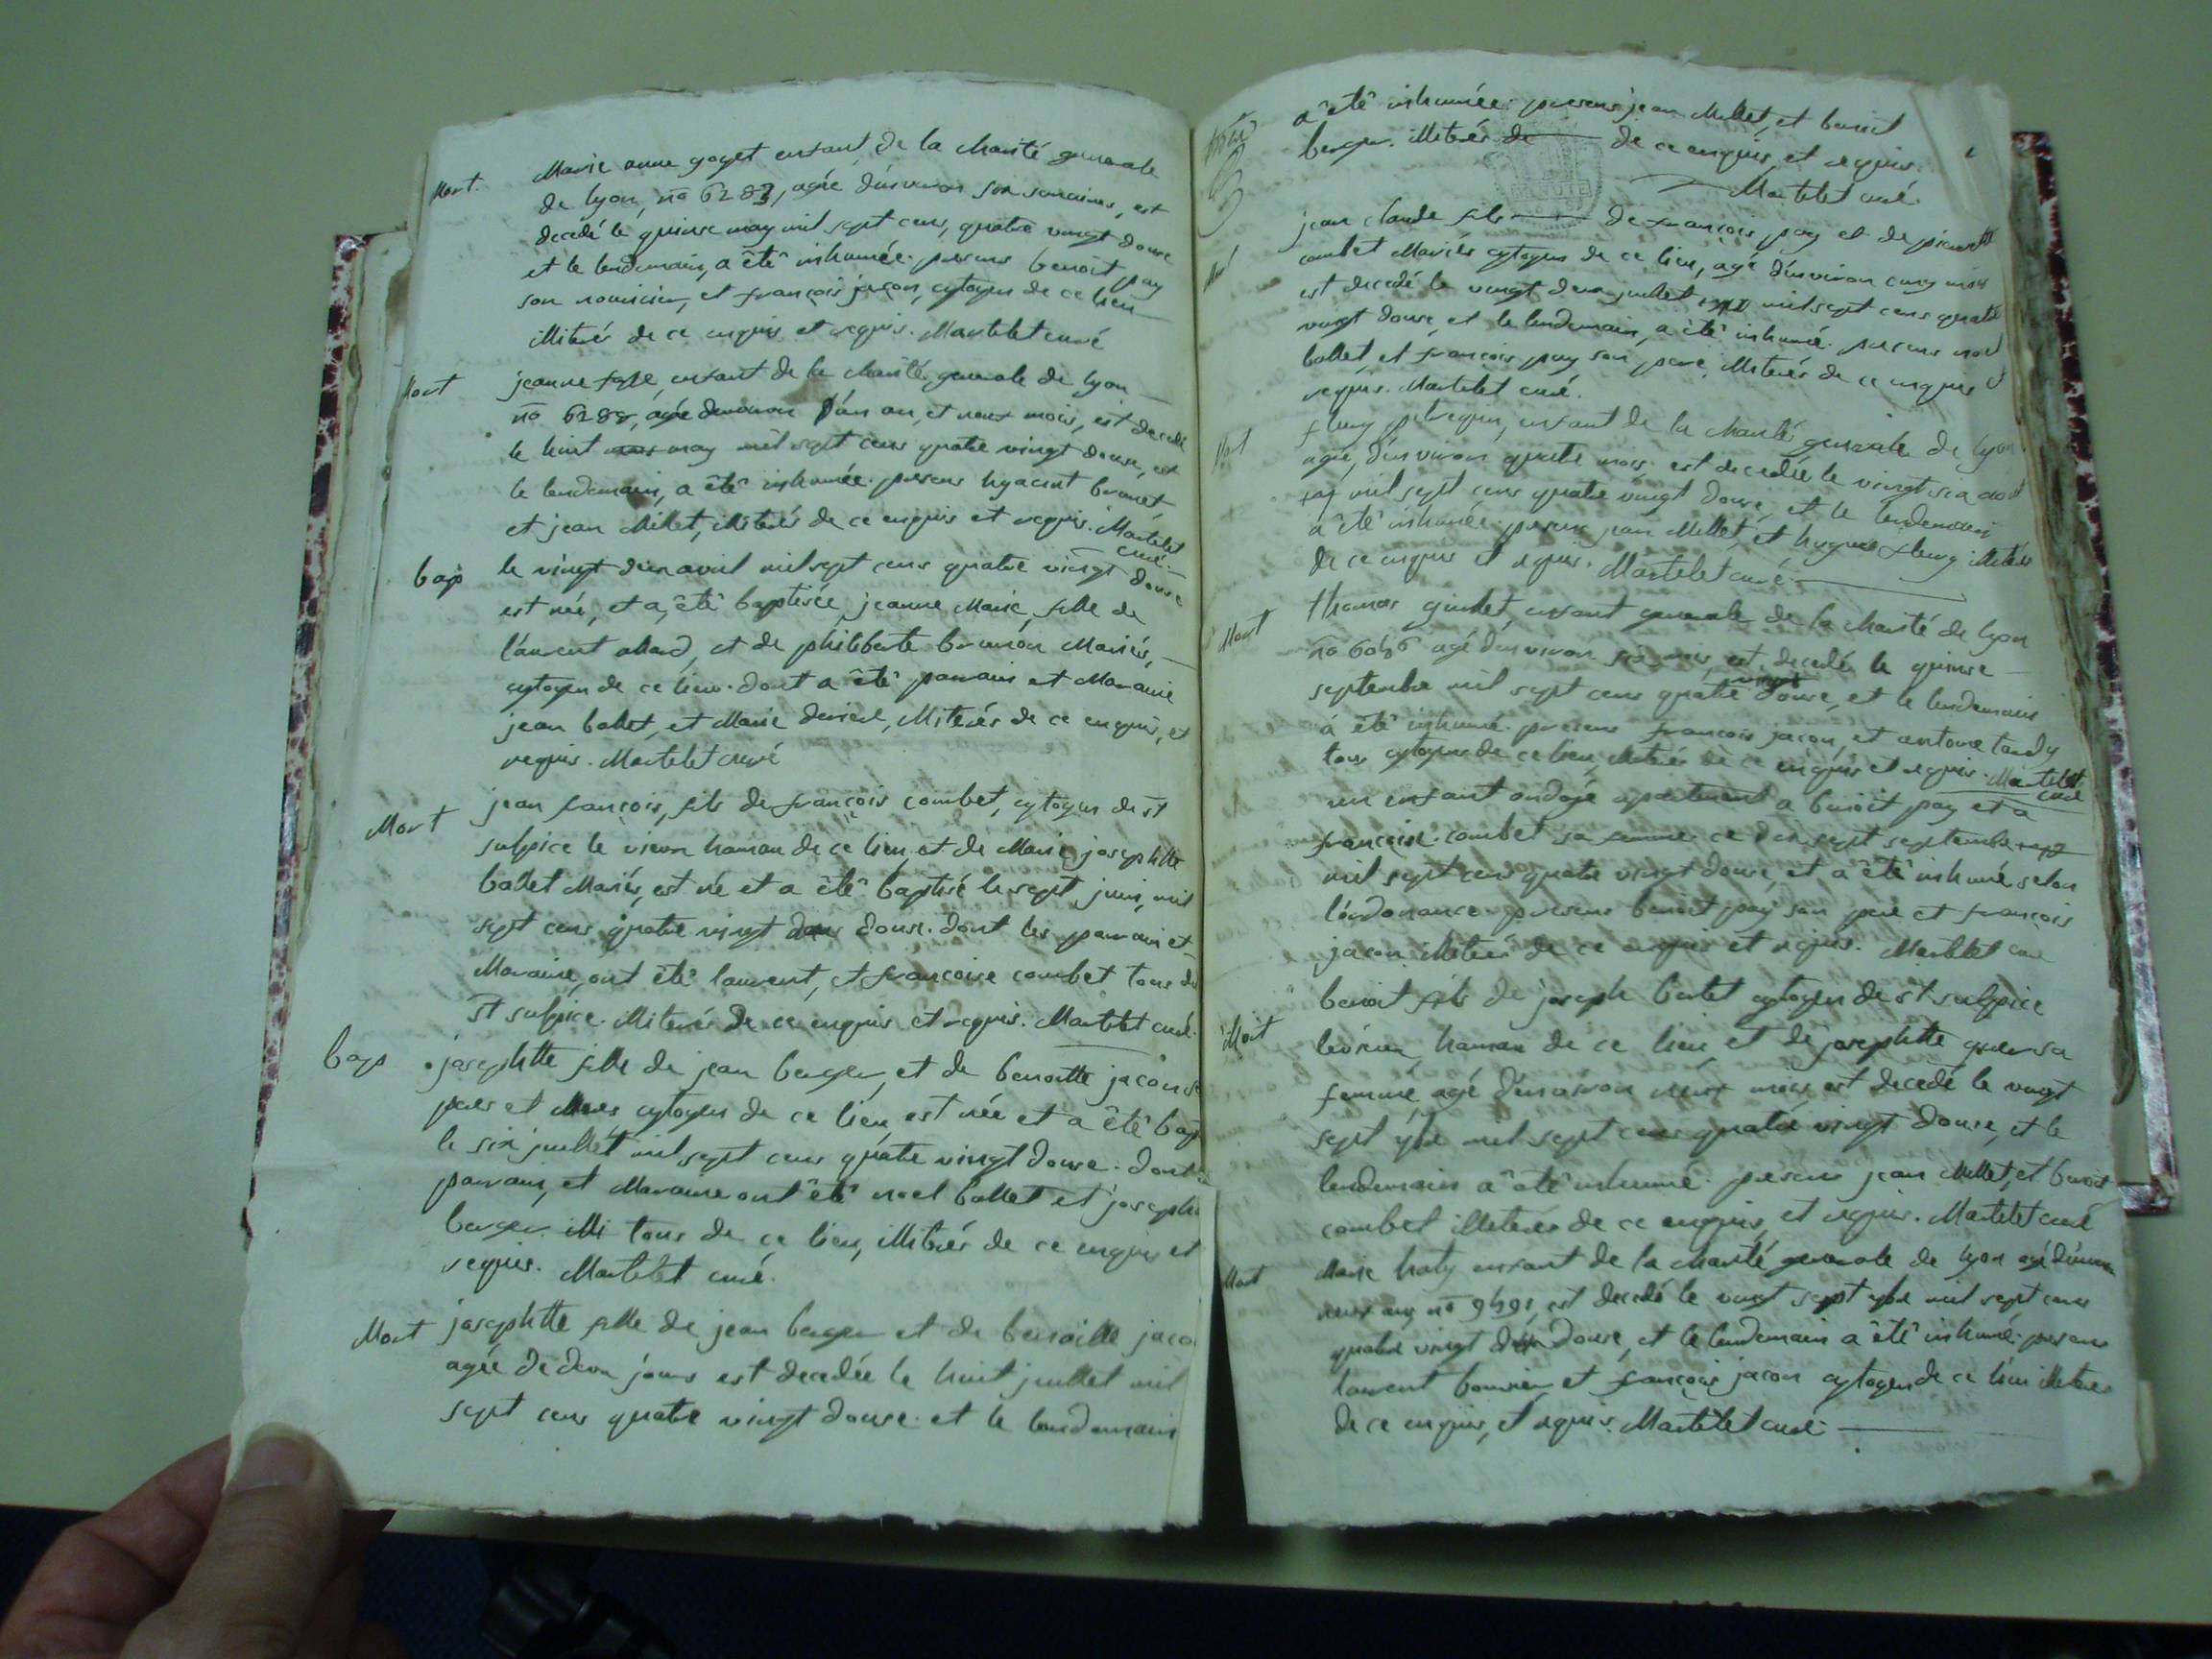 Mort.
Marie anne goyet enfant de la charité generale
de lyon, no 6283, agée d'environ six semaines, est
decedé le quinse may mil sept cens, quatre vingt douse
et le lendemain, a êtê inhumée. presens benoit pay
son nouricier, et françois jacon, cytoyen de ce lieu
illiterés de ce enquis et requis. Martelet curé
Mort
jeanne enfant de la charité generale de lyon
no agée denviron d'un an, et neuf mois, est decedé
le huit may mil sept cens quatre vingt douse, et
le lendemain, a êtê inhumée. presens hyacint brunet,
et jean Millet, illiterés de ce enquis et requis. Martelet
curé.
bap
le vingt deux avril mil sept cens quatre vingt douse
est née, et a êtê baptisée jeanne Marie, fille de
laurent allard, et de philiberte brunon Mariés,
cytoyen de ce lieu. dont a êtê parrain et Maraine
jean ballet, et Marie illiterés de ce enquis, et
requis. Martelet curé
Mort
jean françois, fils de françois combet, cytoyen de st
sulpice le vieux hamau de ce lieu, et de Marie josephtte
ballet Mariés, est né et a êtê baptisé le sept juin, mil
sept cens quatre vingt douse. dont les parrain et
Maraine, ont êtê laurent, et françoise combet tous de
st sulpice. illiterés de ce enquis et requis. Martelet curé.
bap
josephtte fille de jean berger, et de benoitte jacon
peres et Meres cytoyen de ce lieu, est née et a êtê bap
le six juillet mil sept cens quatre vingt douse. dont
parrain, et Maraine ont êtê noel ballet et joseph
berger. illi tous de ce lieu, illiterés de ce enquis et
requis. Martelet curé.
Mort
josephtte fille de jean berger et de benoitte jaco
agée de deux jours est decedée le huit juillet mil
sept cens quatre vingt douse. et le lendemain
a êtê inhumée. presens jean Millet, et benoit
berger. illiterés de de ce enquis, et requis.
Martelet curé.
Mort
jean claude fils de françois pay et de pierrette
combet Mariés cytoyen de ce lieu, agé d'environ cinq mois
est decedé le vingt deux juillet mil sept cens quatre
vingt douse, et le lendemain, a êtê inhumé. presens noel
ballet, et françois pay son pere, illiterés de ce enquis et
requis. Martelet curé.
Mort
fleury petrequin, enfant de la charité generale de lyon
agée, d'environ quatre mois. est decedée le vingt six aout
mil sept cens quatre vingt douse, et le lendemain
a êtê inhumée. presens jean Millet, et hugues fleury illiterés
de ce enquis et requis. Martelet curé.
Mort
thomas enfant generale de la charité de lyon
no agé denviron six mois, est decedé le quinse
septembre mil sept cens quatre vingt douse, et le lendemain
a êtê inhumé. presens françois jacon, et antoine tardy
tous cytoyen de ce lieu illiterés de ce enquis et requis. Martelet
curé
un enfant ondoyé apartenant a benoit pay et a
françoise combet sa femme. ce dix sept septembre
mil sept cens quatre vingt douse, et a êtê inhumé selon
l'ordonance. presens benoit pay son pere et françois
jacon illiterés de ce enquis et requis. Martelet curé
Mort
benoit fils de joseph ballet cytoyen de st sulpice
levieux, hamau de ce lieu, et de josephtte sa
femme agé d'environ neuf mois, est decedé le vingt
sept 7bre mil sept cens quatre vingt douse, et le
lendemain a êtê inhumé. presens jean Millet, et benoit
combet illiterés de ce enquis, et requis. Martelet curé
Mort
Marie enfant de la charité generale de lyon agé d'environ
neuf ans no est decedé le vingt sept 7bre mil sept cens
quatre vingt douse, et le lendemain a êtê inhumé. presens
laurent et françois jacon cytoyen de ce lieu illiteres
de ce enquis, et requis. Martelet curé